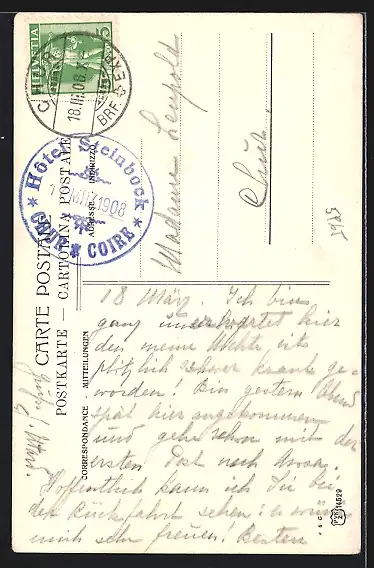 CARTE POSTALE
POSTKARTE — CARTOLINA POSTALE
ADRESSE INDIRIZZO
CORRESPONDANCE MITTEILUNGEN
HELVETIA
5
18.III.08
BRF. EXP.
Hôtel Steinbock
MRZ 1908
CHUR COIRE
Madame Leupold
Chur.
1925
18 März. Ich bin
ganz unerwartet hier
den meine Nichte ist
plötzlich schwer krank ge-
worden! Bin gestern Abend
spät hier angekommen
und gehe schon mit der
ersten Post nach Arosa.
Hoffentlich kann ich Sie bei
der Rückfahrt sehen: es würde
mich sehr freuen! Besten
Gruss!
14529